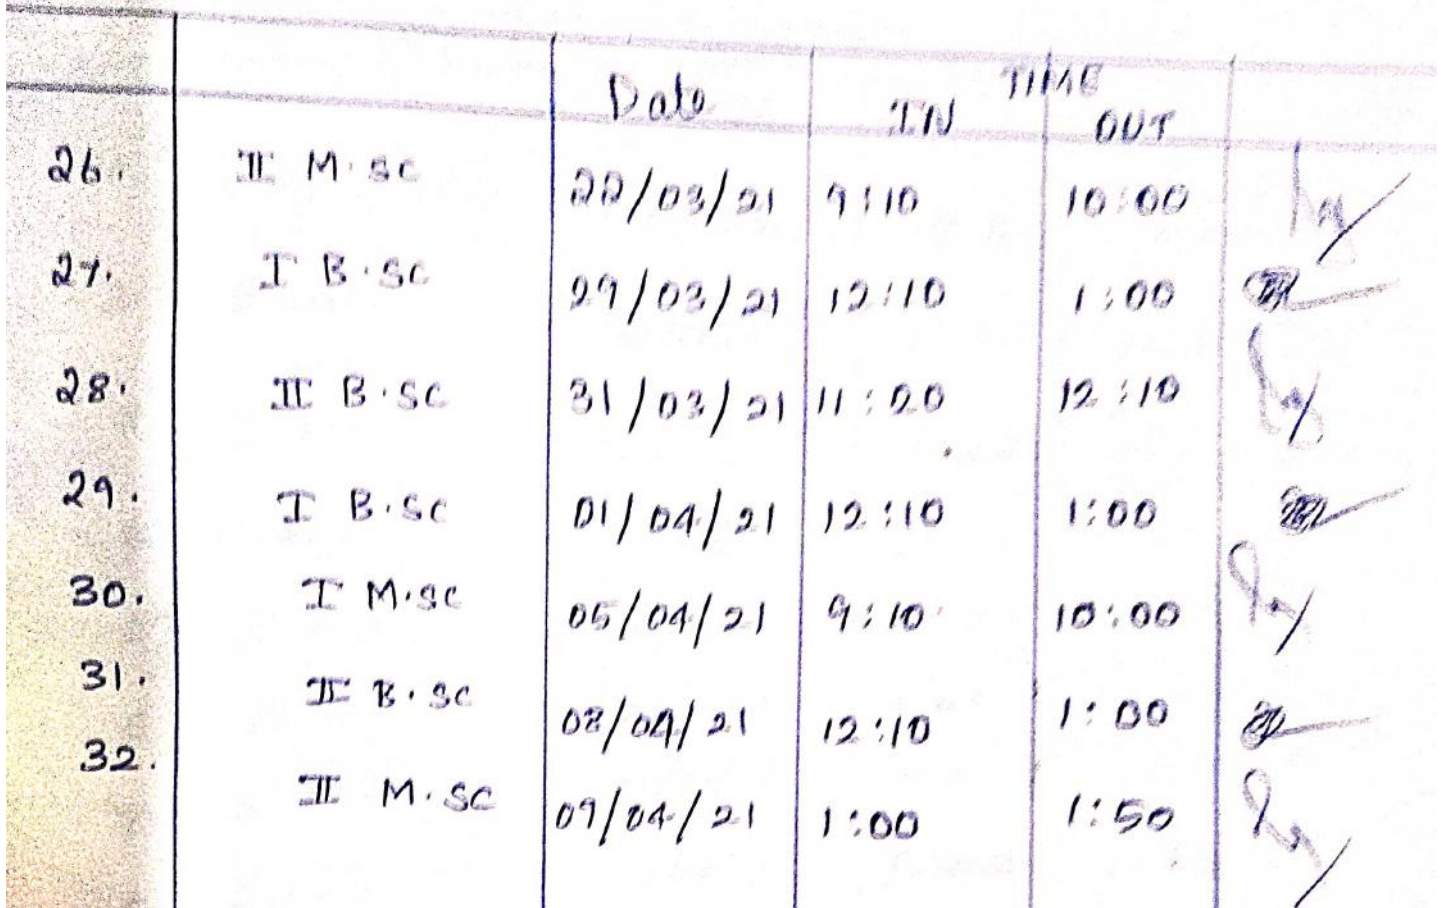 TIME
Date IN OUT
26. II M.SC 22/03/21 9:10 10:00
27. I B.SC 29/03/21 12:10 1:00
28. II B.SC 31/03/21 11:20 12:10
29. I B.SC 01/04/21 12:10 1:00
30. I M.SC 05/04/21 9:10 10:00
31. II B.SC 08/04/21 12:10 1:00
32. II M.SC 09/04/21 1:00 1:50